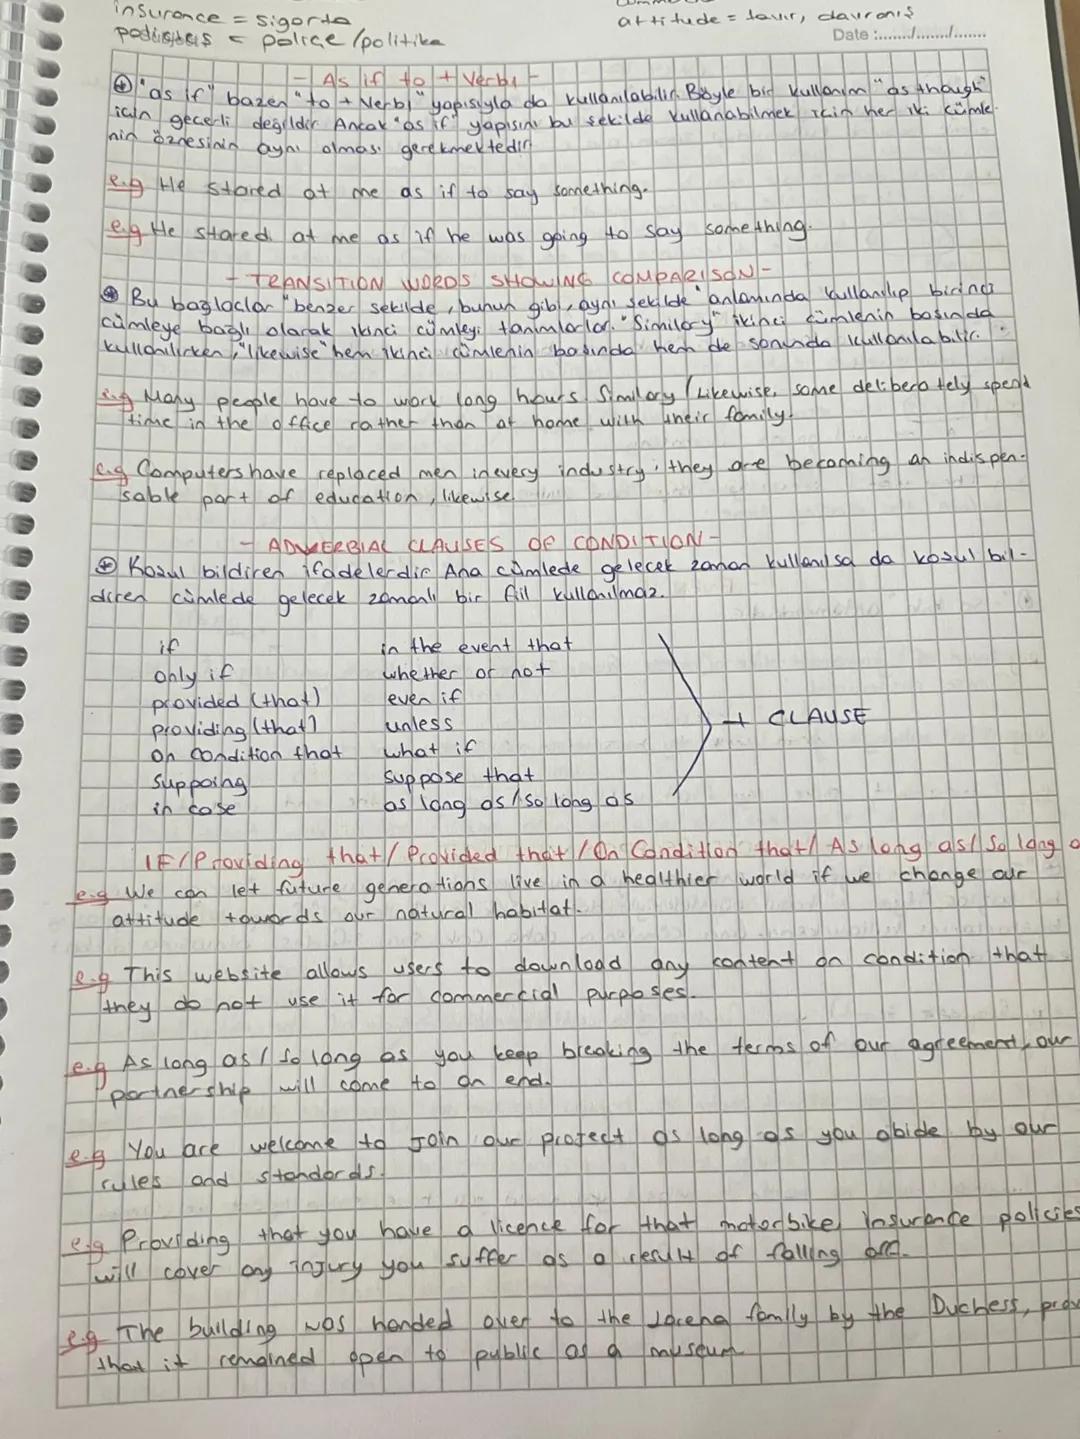 insurance = sigorta
attitude = tavır, davranış
= poliçe/politika
Date :......./......./.......
- As if to + Verb1 -
"as if" bazen "to + Verb1" yapısıyla da kullanılabilir. Böyle bir kullanım "as though"
icin gecerli değildir Ancak "as if" yapısını bu sekilde kullanabilmek icin her iki cümle-
nin öznesinin aynı olması gerekmektedir
e.g He stared at me as if to say something.
e.g He stared at me as if he was going to say something.
- TRANSITION WORDS SHOWING COMPARISON -
Bu baglaclar "benzer sekilde, bunun gibi, aynı sekilde" anlamında kullanılıp birinci
cümleye bağlı olarak ikinci cümleyi tanımlarlar. "Similary" ikinci cümlenin basında
kullanılırken, "likewise" hem ikinci cümlenin basında hem de sonunda kullanılabilir.
e.g Many people have to work long hours. Similary / Likewise, some deliberately spend
time in the office rather than at home with their family.
e.g Computers have replaced men in every industry; they are becoming an indispen-
sable part of education, likewise
- ADVERBIAL CLAUSES OF CONDITION -
Kosul bildiren ifadelerdir Ana cümlede gelecek zaman kullanılsa da kosul bil-
diren cümlede gelecek zamanlı bir fiil kullanılmaz.
if in the event that
only if whether or not
provided (that) even if
providing (that) unless + CLAUSE
on condition that what if
suppoing suppose that
in case as long as / so long as
IF / Providing that / Provided that / On Condition that / As long as / So long a
e.g We can let future generations live in a healthier world if we change our
attitude towards our natural habitat.
e.g This website allows users to download any content on condition that
they do not use it for commercial purposes.
e.g As long as / So long as you keep breaking the terms of our agreement, our
partnership will come to an end.
e.g You are welcome to join our project as long as you abide by our
rules and standards.
e.g Providing that you have a licence for that motorbike, insurance policies
will cover any injury you suffer as a result of falling off.
e.g The building was handed over to the family by the Duchess, prov
that it remained open to public as a museum